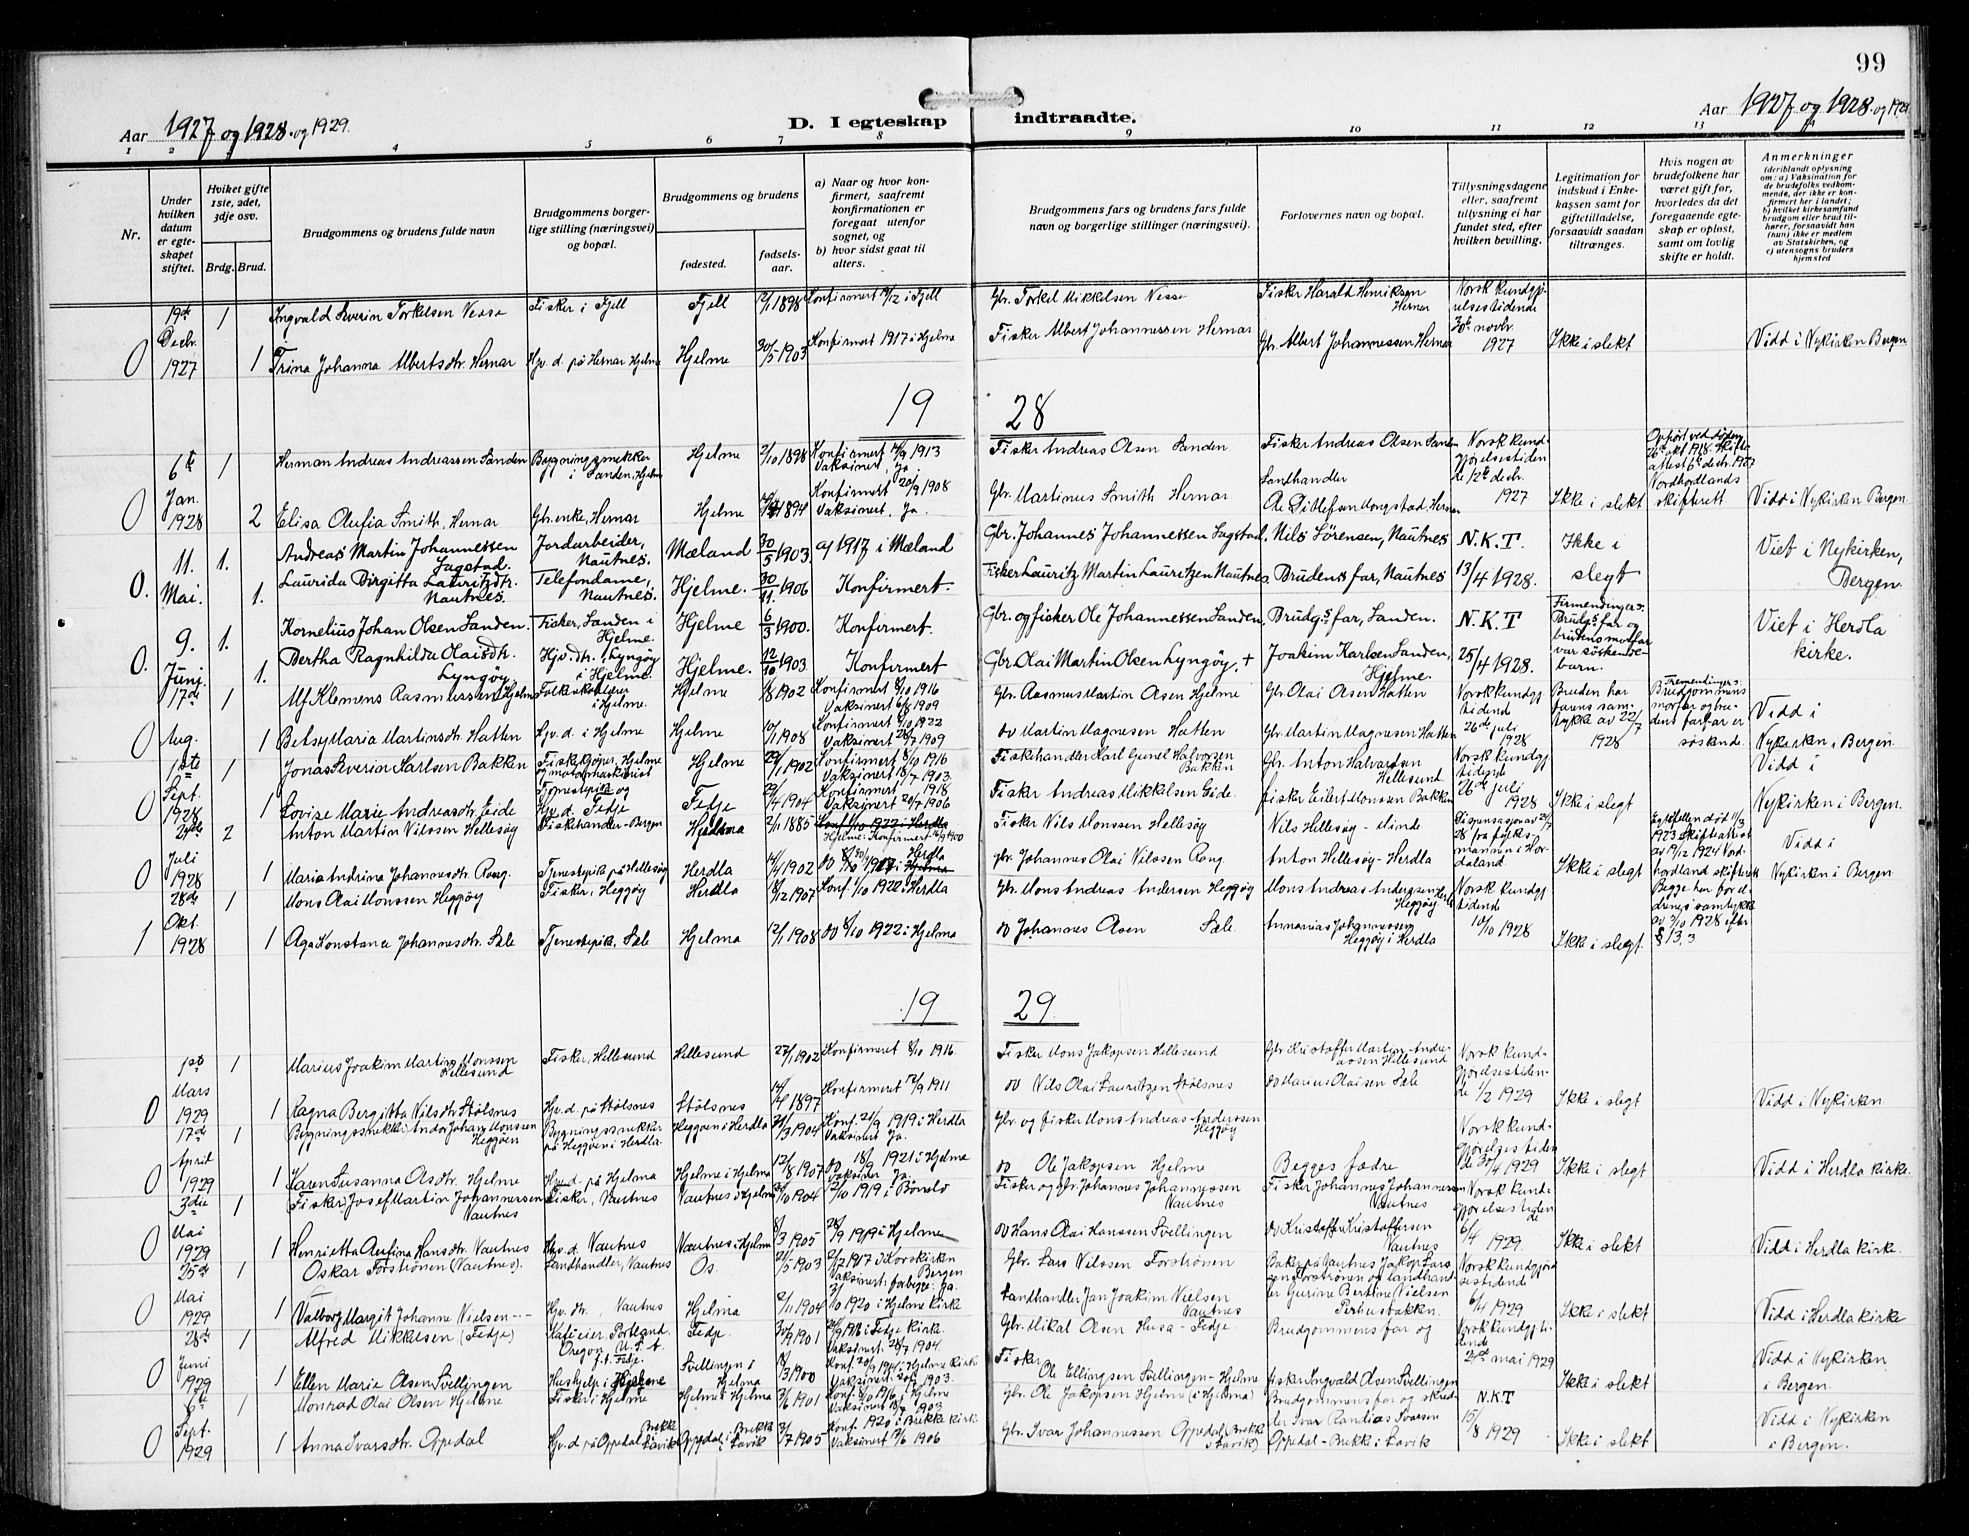 99
Aar 1927 og 1928 og 1929.
D. I egteskap indtraadte.
Aar 1927 og 1928 og 1929
1 2 3 4 5 6 7 8 9 10 11 12 13
Nr.
Under hvilken datum er egteskapet stiftet.
Hviket gifte 1ste, 2det, 3dje osv.
Brdg. Brud.
Brudgommens og brudens fulde navn
Brudgommens borgerlige stilling (næringsvei) og bopæl.
Brudgommens og brudens
fødested.
fødselsaar.
a) Naar og hvor konfirmert, saafremt konfirmationen er foregaat utenfor sognet, og
b) hvor sidst gaat til alters.
Brudgommens fars og brudens fars fulde navn og borgerlige stillinger (næringsvei).
Forlovernes navn og bopæl.
Tillysningsdagene eller, saafremt tillysning ei har fundet sted, efter hvilken bevilling.
Legitimation for indskud i Enkekassen samt for giftetilladelse, forsaavidt saadan tiltrænges.
Hvis nogen av brudefolkene har været gift før, hvorledes da det foregaaende egteskap er opløst, samt om lovlig skifte er holdt.
Anmerkninger (deriblandt oplysning om: a) Vaksination for de brudefolks vedkommende, der ikke er konfirmert her i landet; b) hvilket kirkesamfund brudgom eller brud tilhører, forsaavidt han (hun) ikke er medlem av Statskirken, og c) utensogns bruders hjemsted
19de 1 Ingvald Severin Torkelsen Vesse Fisker i Fjell Fjell 12/1 1898 Konfirmert 12 i Fjell Gbr. Torkel Mikkelsen Vesse Fisker Harald Henriksen Hernar Norsk kundgjørelsestidende
Decbr. 30te novbr.
0 1927 1 Trina Johanna Albertsdtr. Hernar Hjv. d. på Hernar Hjelme Hjelme 30/5 1903 Konfirmert 1917 i Hjelme Fisker Albert Johannessen Hernar Gbr. Albert Johannessen Hernar 1927 Ikke i slekt Vidd i Nykirken Bergen
19 28
6te 1 Herman Andreas Andreassen Sanden Bygningssnekker i Sanden, Hjelme Hjelme 2/10 1898 Konfirmert 14/9 1913 Vaksinert, ja Fisker Andreas Olsen Sanden Fisker Andreas Olsen Sanden Norsk kundgjørelsestidende 12te decbr.
Jan.
0 1928 2 Elisa Olufia Smith, Hernar Gbr. enke, Hernar Hjelme 1894 Konfirmert 20/9 1908 Vaksinert, ja. Gbr. Martinus Smith Hernar Landhandler Ole Ditlefsen Mongstad, Hernar 1927 Ikke i slekt Nordhordlands skifterett Vidd i Nykirken Bergen
11. 1. Andreas Martin Johannessen Sagstad. Jordarbeider, Nautnes. Mæland 30/5 1903 af 1917 i Mæland Gbr. Johannes Johannessen Sagstad. Nils Sörensen, Nautnes N.K.T. Ikke i slegt Viet i Nykirken, Bergen.
0. Mai. 1. Laurida Birgitta Lauritzdtr. Nautnes. Telefondame, Nautnes. Hjelme. 30/11 1906 Konfirmert. Fisker Lauritz Martin Lauritzen Nautnes. Brudens far, Nautnes 13/4 1928.
9. 1. Kornelius Johan Olsen Sanden. Fisker, Sanden i Hjelme. Hjelme 6/3 1900. Konfirmert. Gbr. og fisker Ole Johannessen Sanden. Brudg.s far, Sanden. N.K.T Firmendinger: Brudg.s far og brudens morfar var søskendebarn. Viet i Herdla kirke.
0. Juni. 1. Bertha Ragnhilda Olaisdtr. Lyngöy Hjv. dtr., Lyngöy i Hjelme. Hjelme. 12/10 1903 Konfirmert Gbr. Olai Martin Olsen Lyngöy, + Joakim Karlsen Sanden, Hjelme. 25/4 1928.
17de 1 Alf Klemens Rasmussen Hjelme Folkeskolelærer i Hjelme. Hjelme 1902 Konfirmert 8/10 1916 Vaksinert 6/8 1909 Gbr. Rasmus Martin Olsen Hjelme Gbr. Olai Olsen Hatten Norsk kundgj tidend 26de juli 1928 Bruden har farens samtykk av 22/7 1928 Tremendinger: Brudgommens morfar og brudens farfar er søskende. Vidd i Nykirken i Bergen
Aug. 1 Betsy Maria Martinsdtr Hatten Hjv. d. i Hjelme Hjelme 10/1 1908 Konfirmert 1/10 1922 Vaksinert 28/7 1909 do Martin Magnesen Hatten Gbr. Martin Magnesen Hatten
1ste 1 Jonas Severin Karlsen Bakken Fiskekjøper, Hjelme og motormaskinist Hjelme 29/1 1902 Konfirmert 8/10 1916 Vaksinert 18/7 1903. Fiskehandler Karl Gunel Halvorsen Bakken Gbr. Anton Halvorsen Hellesund. Norsk kundgj tidend 26de juli 1928 Vidd i Nykirken i Bergen.
Sept.
0 1928 1 Lovise Marie Andreasdtr. Eide Tjenestepike og Hjv. d. Fedje Fedje 29/4 1904 Konfirmert 1918 Vaksinert 20/7 1906 Fisker Andreas Mikkelsen Eide. fisker Eilert Monssen Bakken Ikke i slegt
29de 2 Anton Martin Nilssen Hellesøy Fiskehandler - Bergen Hjelma 2/11 1885 Hjelme: Konfirmert 1900 Fisker Nils Monssen Hellesøy Nils Hellesøy - Minde Dispensasjon av 24/7 28 fra fylkesmannen i Hordaland Egtefellen død 11/3 1923 Skifteattest av 19/12 1924 Nordhordland skifterett Vidd i Nykirken i Bergen
Juli
0 1928 1 Maria Andrina Johannesdtr. Rong. Tjenestepik på Hellesøy Herdla 14/4 1902 Gbr. Johannes Olai Nilssen Rong. Anton Hellesøy - Herdla Ikke i slegt
28de 1 Mons Olai Monssen Heggøy Fisker, Heggøy Herdla 18/12 1907 Konf. 1/10 1922 i Herdla Gbr. Mons Andreas Andersen Heggøy Mons Andreas Andersen Heggøy Norsk kundgj tidend Begge har foreldrenes samtykke av 3/10 1928 efter § 13,3
Okt.
1 1928 1 Aga Konstanse Johannesdtr. Sæle Tjenestepik, Sæle Hjelma 12/1 1908 do 8/10 1922 i Hjelma do Johannes Olsen Sæle. Annanias Johannessen Heggøy i Herdla 10/10 1928 Ikke i slegt.
19 29
1ste 1 Marius Joakim Martin Monssen Hellesund Fisker, Hellesund Hellesund 22/1 1902 Konfirmeret 8/10 1916. Fisker Mons Jakopsen Hellesund Gbr. Kristoffer Martin Andreassen Hellesund Norsk kundgjørelsestidende 1/2 1929
Mars
0 1929 1 Ragna Bergitta Nilsdtr. Stölsnes Hjv. d. på Stölsnes Stölsnes 14/4 1897 Konfirmeret 17/9 1911 do Nils Olai Lauritzen Stölsnes do Marius Olaisen Sæle Ikke i slegt Vidd i Nykirken
17de 1 Bygningssnekker Andor Johan Monssen Heggøen Bygningssnekker på Heggøen i Herdla. Heggøen i Herdla 1904 Konf. 21/9 1919 i Herdla Vaksinert Ja. Gbr. og fisker Mons Andreas Andersen Heggøy Norsk kundgjørelsestidende
April
0 1929 1 Karen Susanna Olsdtr. Hjelme Hjv. d. på Hjelma Hjelme i Hjelme 12/8 1907 do 18/9 1921 i Hjelme Vaksiner Ja do Ole Jakopsen Hjelme Begges fædre 4 1929 Ikke i slegt Vidd i Herdla kirke.
3die 1 Fisker Josef Martin Johannessen Vautnes Fisker, Vautnes Vautnes i Hjelma 10 1904 10 1919 i Fisker og gbr Johannes Johannessen Vautnes Fisker Johannes Johannessen Vautnes Norsk kundgjørelsestidende
Mai
0 1929 1 Henrietta Aufina Hansdtr. Vautnes Hjv. d. Vautnes Vautnes i Hjelma 8/3 1905 28/9 1919 i Hjelme do Hans Olai Hanssen Svellingen do Kristoffer Kristoffersen Vautnes 6/4 1929. Ikke i slekt Vidd i Herdla kirke.
25de 1 Oskar Forströnen (Vautnes). Landhandler, Vautnes Os. 21/5 1903 1917 i Korskirken Bergen Vaksinert: for begge: ja. Gbr. Lars Nilssen Forströnen Baker på Vautnes Jakop Larssen Forströnen og landhandler Gurine Bertine Nielsen Norsk kundgjørelsestidend
Mai
0 1929 1 Valborg Margit Johanne Nielsen Hjv. dtr., Vautnes Hjelma 2/11 1904 10 1920 i Hjelme kirke Landhandler Jan Joakim Nielsen Vautnes 6/4 1929 Ikke i slekt Vidd i Herdla kirke
28de 1 Alfred Mikkelsen (Fedje) Portland Oregon U.S.A f.t. Fedje. Fedje. 30/9 1901 1916 i Fedje kirke. Vaksinert 28/7 1904. Gbr. Mikal Olsen Husa - Fedje. Brudgommens far og Norsk kundgj.tidende 2den mai 1929 Vidd i Nykirken i Bergen.
Juni
0 1929 1 Ellen Marie Olsen Svellingen Hushjelp i Hjelme Svellingen i Hjelma 3 1900 Konf. 20/9 1914 i Hjelme kirke Vaksinert 1903. Fisker Ole Ellingsen Svellingen - Hjelme fisker Ingvald Olsen Svellingen Ikke i slekt
6te 1 Monrad Olai Olsen Hjelme Fisker i Hjelme Hjelme i Hjelma 3/6 1901 Konf. 1916 i Hjelme Vaksinert 18/7 1903 Gbr. Ole Jakopsen Hjelme (i Hjelma) Brudgommens far og skredder Ivar Randias Ivarsen Oppedal - Brekke i Lavik N.K.T 15/8 1929 Vidd i Nykirken i Bergen.
Sept.
0 1929 1 Anna Ivarsdtr. Oppedal Hjv. d. på Oppedal Brekke i Lavik Oppedal i Brekke Lavik 3/7 1905 Konf. 1920 i Brekke kirke Vaksinert 1906 Gbr. Ivar Johannessen Oppedal (Brekke i Lavik) Ikke i slekt